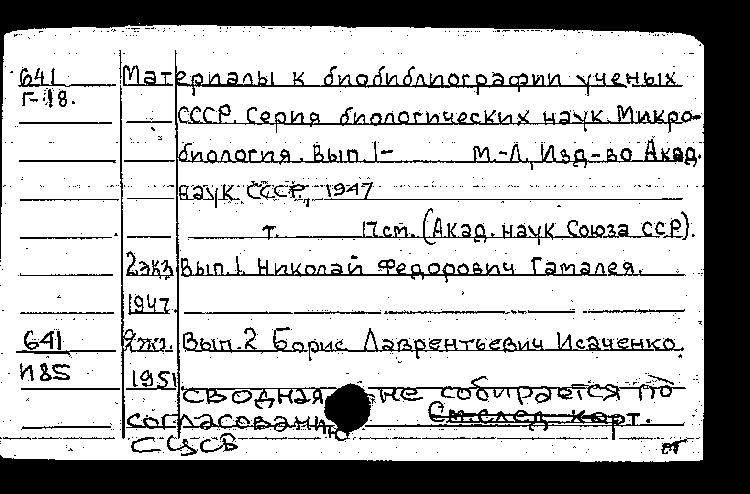 641 Материалы к биобиблиографии ученых
Г-18. СССР. Серия биологических наук. Микро-
биология. Вып. 1- М.-Л., Изд-во Акад.
наук СССР, 1947
т. 17см. (Акад. наук Союза ССР).
2экз. Вып.1. Николай Федорович Гамалея.
1947.
641 2экз. Вып.2 Борис Лаврентьевич Исаченко.
И85 1951
сводная не собирается по
согласованию См. след. карт.
СЦСВ